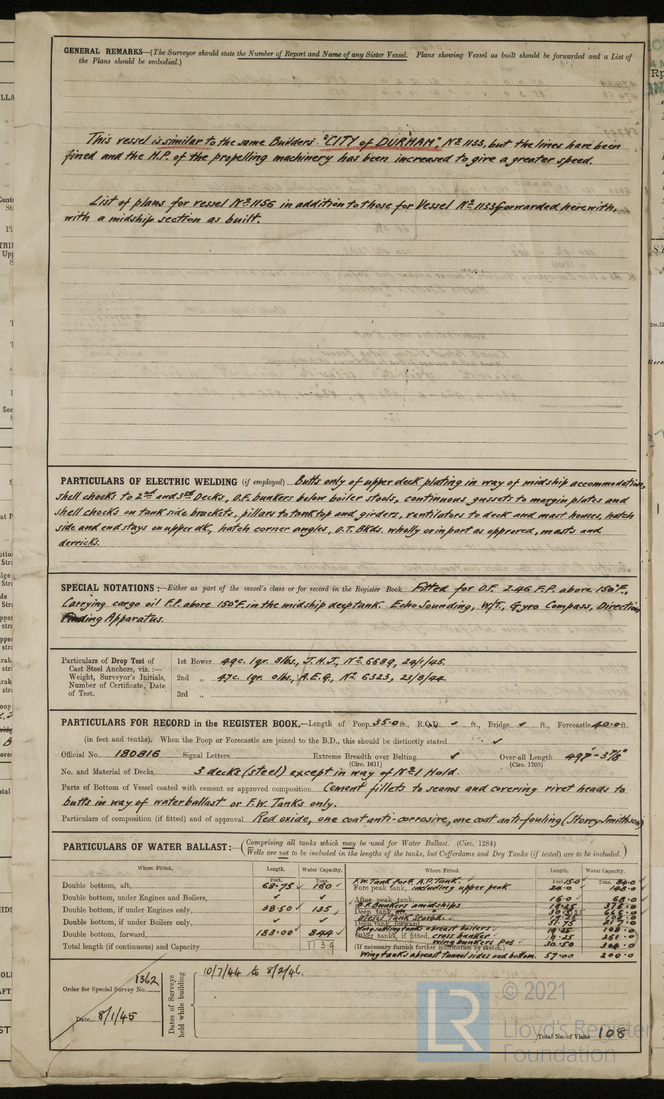 GENERAL REMARKS—(The Surveyor should state the Number of Report and Name of any Sister Vessel. Plans showing Vessel as built should be forwarded and a List of
the Plans should be embodied.)
This vessel is similar to the same Builders "CITY of DURHAM" No 1133, but the lines have been
fined and the H.P. of the propelling machinery has been increased to give a greater speed.
List of plans for vessel No 1156 in addition to those for Vessel No 1133 forwarded herewith,
with a midship section as built.
PARTICULARS OF ELECTRIC WELDING (if employed) Butts only of upper deck plating in way of midship accommodation,
shell chocks to 2nd and 3rd Decks, O.F. bunkers below boiler stools, continuous gussets to margin plates and
shell chocks on tank side brackets, pillars to tank top and girders, ventilators to deck and mast houses, hatch
side and end stays on upper dk, hatch corner angles, O.T. Bkds. wholly or in part as approved, masts and
derricks.
SPECIAL NOTATIONS:—Either as part of the vessel's class or for record in the Register Book. Fitted for O.F. 2.46 F.P. above 150°F.,
Carrying cargo oil F.P. above 150°F. in the midship deep tank. Echo Sounding, W/T., Gyro Compass, Direction
Finding Apparatus.
Particulars of Drop Test of
Cast Steel Anchors, viz.:—
Weight, Surveyor's Initials,
Number of Certificate, Date
of Test.
1st Bower 49c. 1qr. 8lbs, J.H.J, No 6689, 24/1/45.
2nd „ 47c. 1qr. 0lbs, A.E.G, No 6323, 23/8/44.
3rd „
PARTICULARS FOR RECORD in the REGISTER BOOK.—Length of Poop 35.0 ft., R.Q.D. ✓ ft., Bridge ✓ ft., Forecastle 40.0 ft.
(in feet and tenths). When the Poop or Forecastle are joined to the B.D., this should be distinctly stated ✓
Official No. 180816 Signal Letters Extreme Breadth over Belting ✓ Over-all Length 497'-3 7/8"
(Circ. 1611) (Circ. 1703)
No. and Material of Decks 3 decks (steel) except in way of No 1 Hold.
Parts of Bottom of Vessel coated with cement or approved composition Cement fillets to seams and covering rivet heads to
butts in way of water ballast or F.W. Tanks only.
Particulars of composition (if fitted) and of approval Red oxide, one coat anti-corrosive, one coat anti-fouling (Storry Smithson)
PARTICULARS OF WATER BALLAST:—(Comprising all tanks which may be used for Water Ballast. (Circ. 1284)
Wells are not to be included in the lengths of the tanks, but Cofferdams and Dry Tanks (if tested) are to be included.)
Where Fitted. Length. Water Capacity. Where Fitted. Length. Water Capacity.
Feet. Tons. F.W. Tank for'd A.P. Tank Feet. Tons.
Double bottom, aft, 68.75 ✓ 160 ✓ Fore peak tank, including upper peak
Double bottom, under Engines and Boilers, ✓ ✓ After peak tank,
Double bottom, if under Engines only, 38.50 ✓ 135 ✓ O.F. Bunkers amidships
Deep tank,
Double bottom, if under Boilers only, ✓ ✓ Diesel Tank Starbd.
Double bottom, forward, 183.00 ✓ 844 ✓ Wing settling tanks abreast boilers
Total length (if continuous) and Capacity 1139 Other tanks, if fitted, cross bunker
(If necessary furnish further information by sketch.) wing bunkers Pos 30.50
Wing tanks abreast tunnel sides and bottom. 57.00 200.0
Order for Special Survey No. 1362
Date 8/1/45
Dates of Surveys
held while building
10/7/44 to 8/2/46.
Total No. of Visits 108
LR
© 2021
Lloyd's Register
Foundation